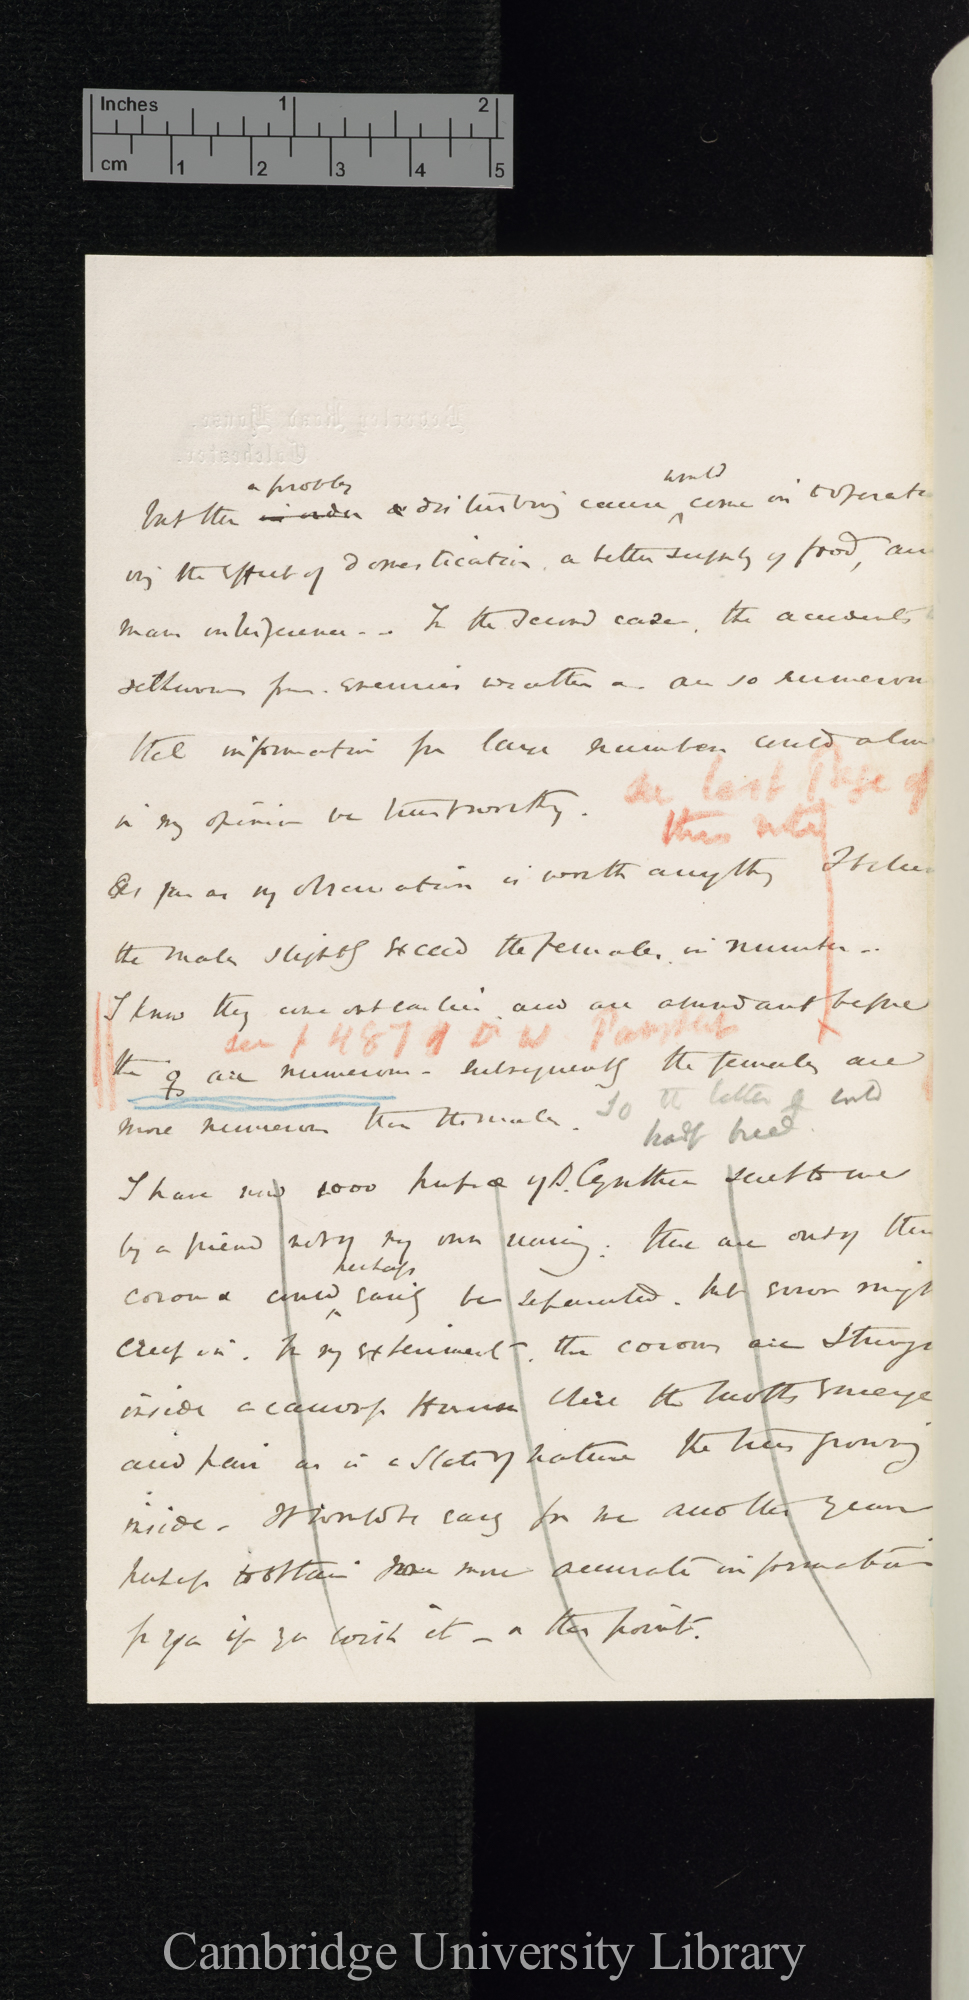 Inches 1 2
cm 1 2 3 4 5
Beverley Road House.
Colchester.
a probly would
but then in order a disturbing cause come in to operate
viz the effect of domestication, a better supply of food, and
mans interference -- In the second case, the accidents
from enemies weather are so numerous
that information from large numbers could alone
in my opinion be trustworthy.
see last Page of
this note
As far as my observation is worth anything I believe
the males slightly exceed the females in number --
I know they come out earlier and are abundant before
see 487 D W
the ♀s are numerous - subsequently the females are
more numerous than the males.
So the latter could
half breed.
I have now 1000 pupæ of B. Cynthia sent to me
by a friend not of my own rearing: these are out of their
perhaps
cocoons could easily be separated. but error might
creep in. In my experiment, the cocoons are strung
inside a canvas House where the moths emerge
and pair as in a state of nature the trees growing
inside - It would be easy for me another year
perhaps to obtain some more accurate information
for you if you wish it - on this point.
Cambridge University Library